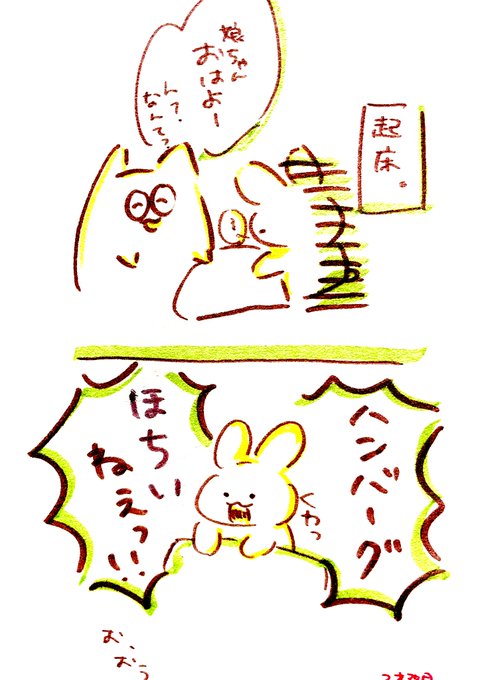 起床。
娘ちゃん
おはよー
ん?
なんて?
ハンバーグ
くわっ
ほちい
ねえっ!!
お、
おう